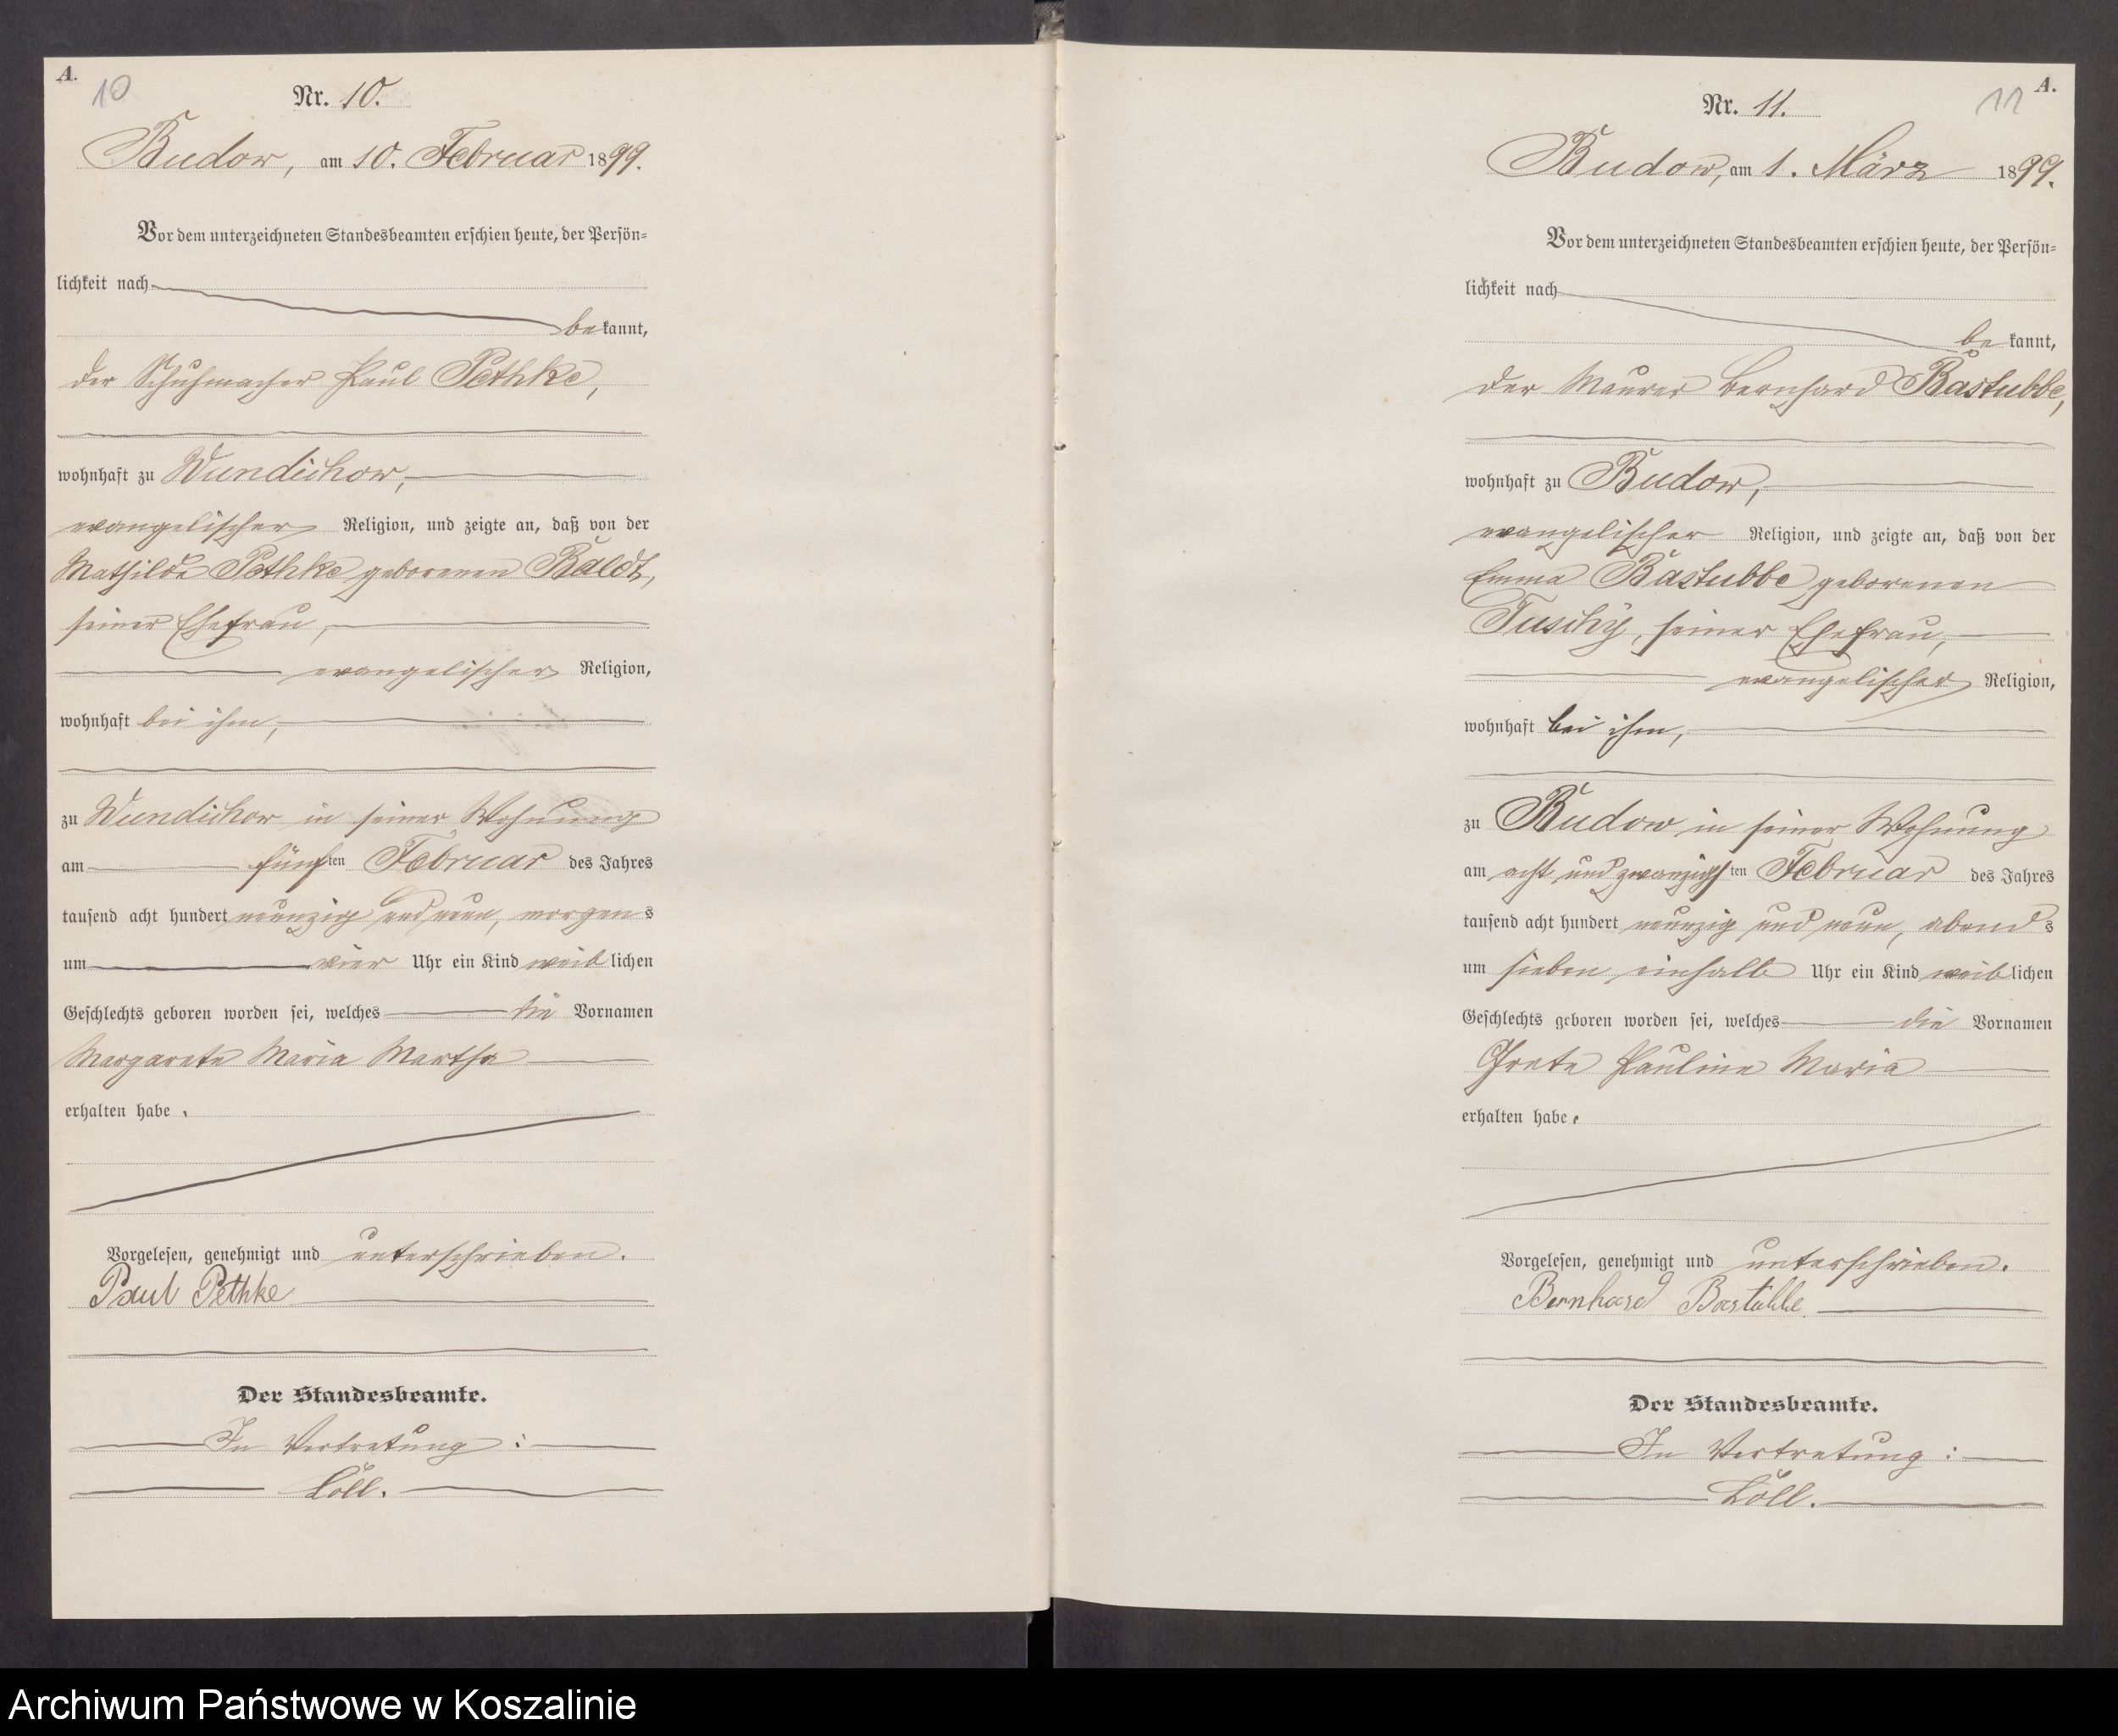 A.
10
Nr. 10.
Budow, am 10. Februar 1899.
Vor dem unterzeichneten Standesbeamten erschien heute, der Persön=
lichkeit nach
bekannt,
der Schuhmacher Paul Pethke,
wohnhaft zu Wundichow,
evangelischer Religion, und zeigte an, daß von der
Mathilde Pethke geborenen Baldt,
seiner Ehefrau,
evangelischer Religion,
wohnhaft bei ihm,
zu Wundichow in seiner Wohnung
am fünften Februar des Jahres
tausend acht hundert neunzig und neun, morgens
um vier Uhr ein Kind weiblichen
Geschlechts geboren worden sei, welches die Vornamen
Margarete Maria Martha
erhalten habe.
Vorgelesen, genehmigt und unterschrieben.
Paul Pethke
Der Standesbeamte.
In Vertretung:
Löll.
A.
11
Nr. 11.
Budow, am 1. März 1899.
Vor dem unterzeichneten Standesbeamten erschien heute, der Persön=
lichkeit nach
bekannt,
der Maurer Bernhard Bastubbe,
wohnhaft zu Budow,
evangelischer Religion, und zeigte an, daß von der
Emma Bastubbe geborenen
Tuschy, seiner Ehefrau,
evangelischer Religion,
wohnhaft bei ihm,
zu Budow in seiner Wohnung
am acht und zwanzigsten Februar des Jahres
tausend acht hundert neunzig und neun, abends
um sieben einhalb Uhr ein Kind weiblichen
Geschlechts geboren worden sei, welches die Vornamen
Grete Pauline Maria
erhalten habe.
Vorgelesen, genehmigt und unterschrieben.
Bernhard Bastubbe
Der Standesbeamte.
In Vertretung:
Löll.
Archiwum Państwowe w Koszalinie